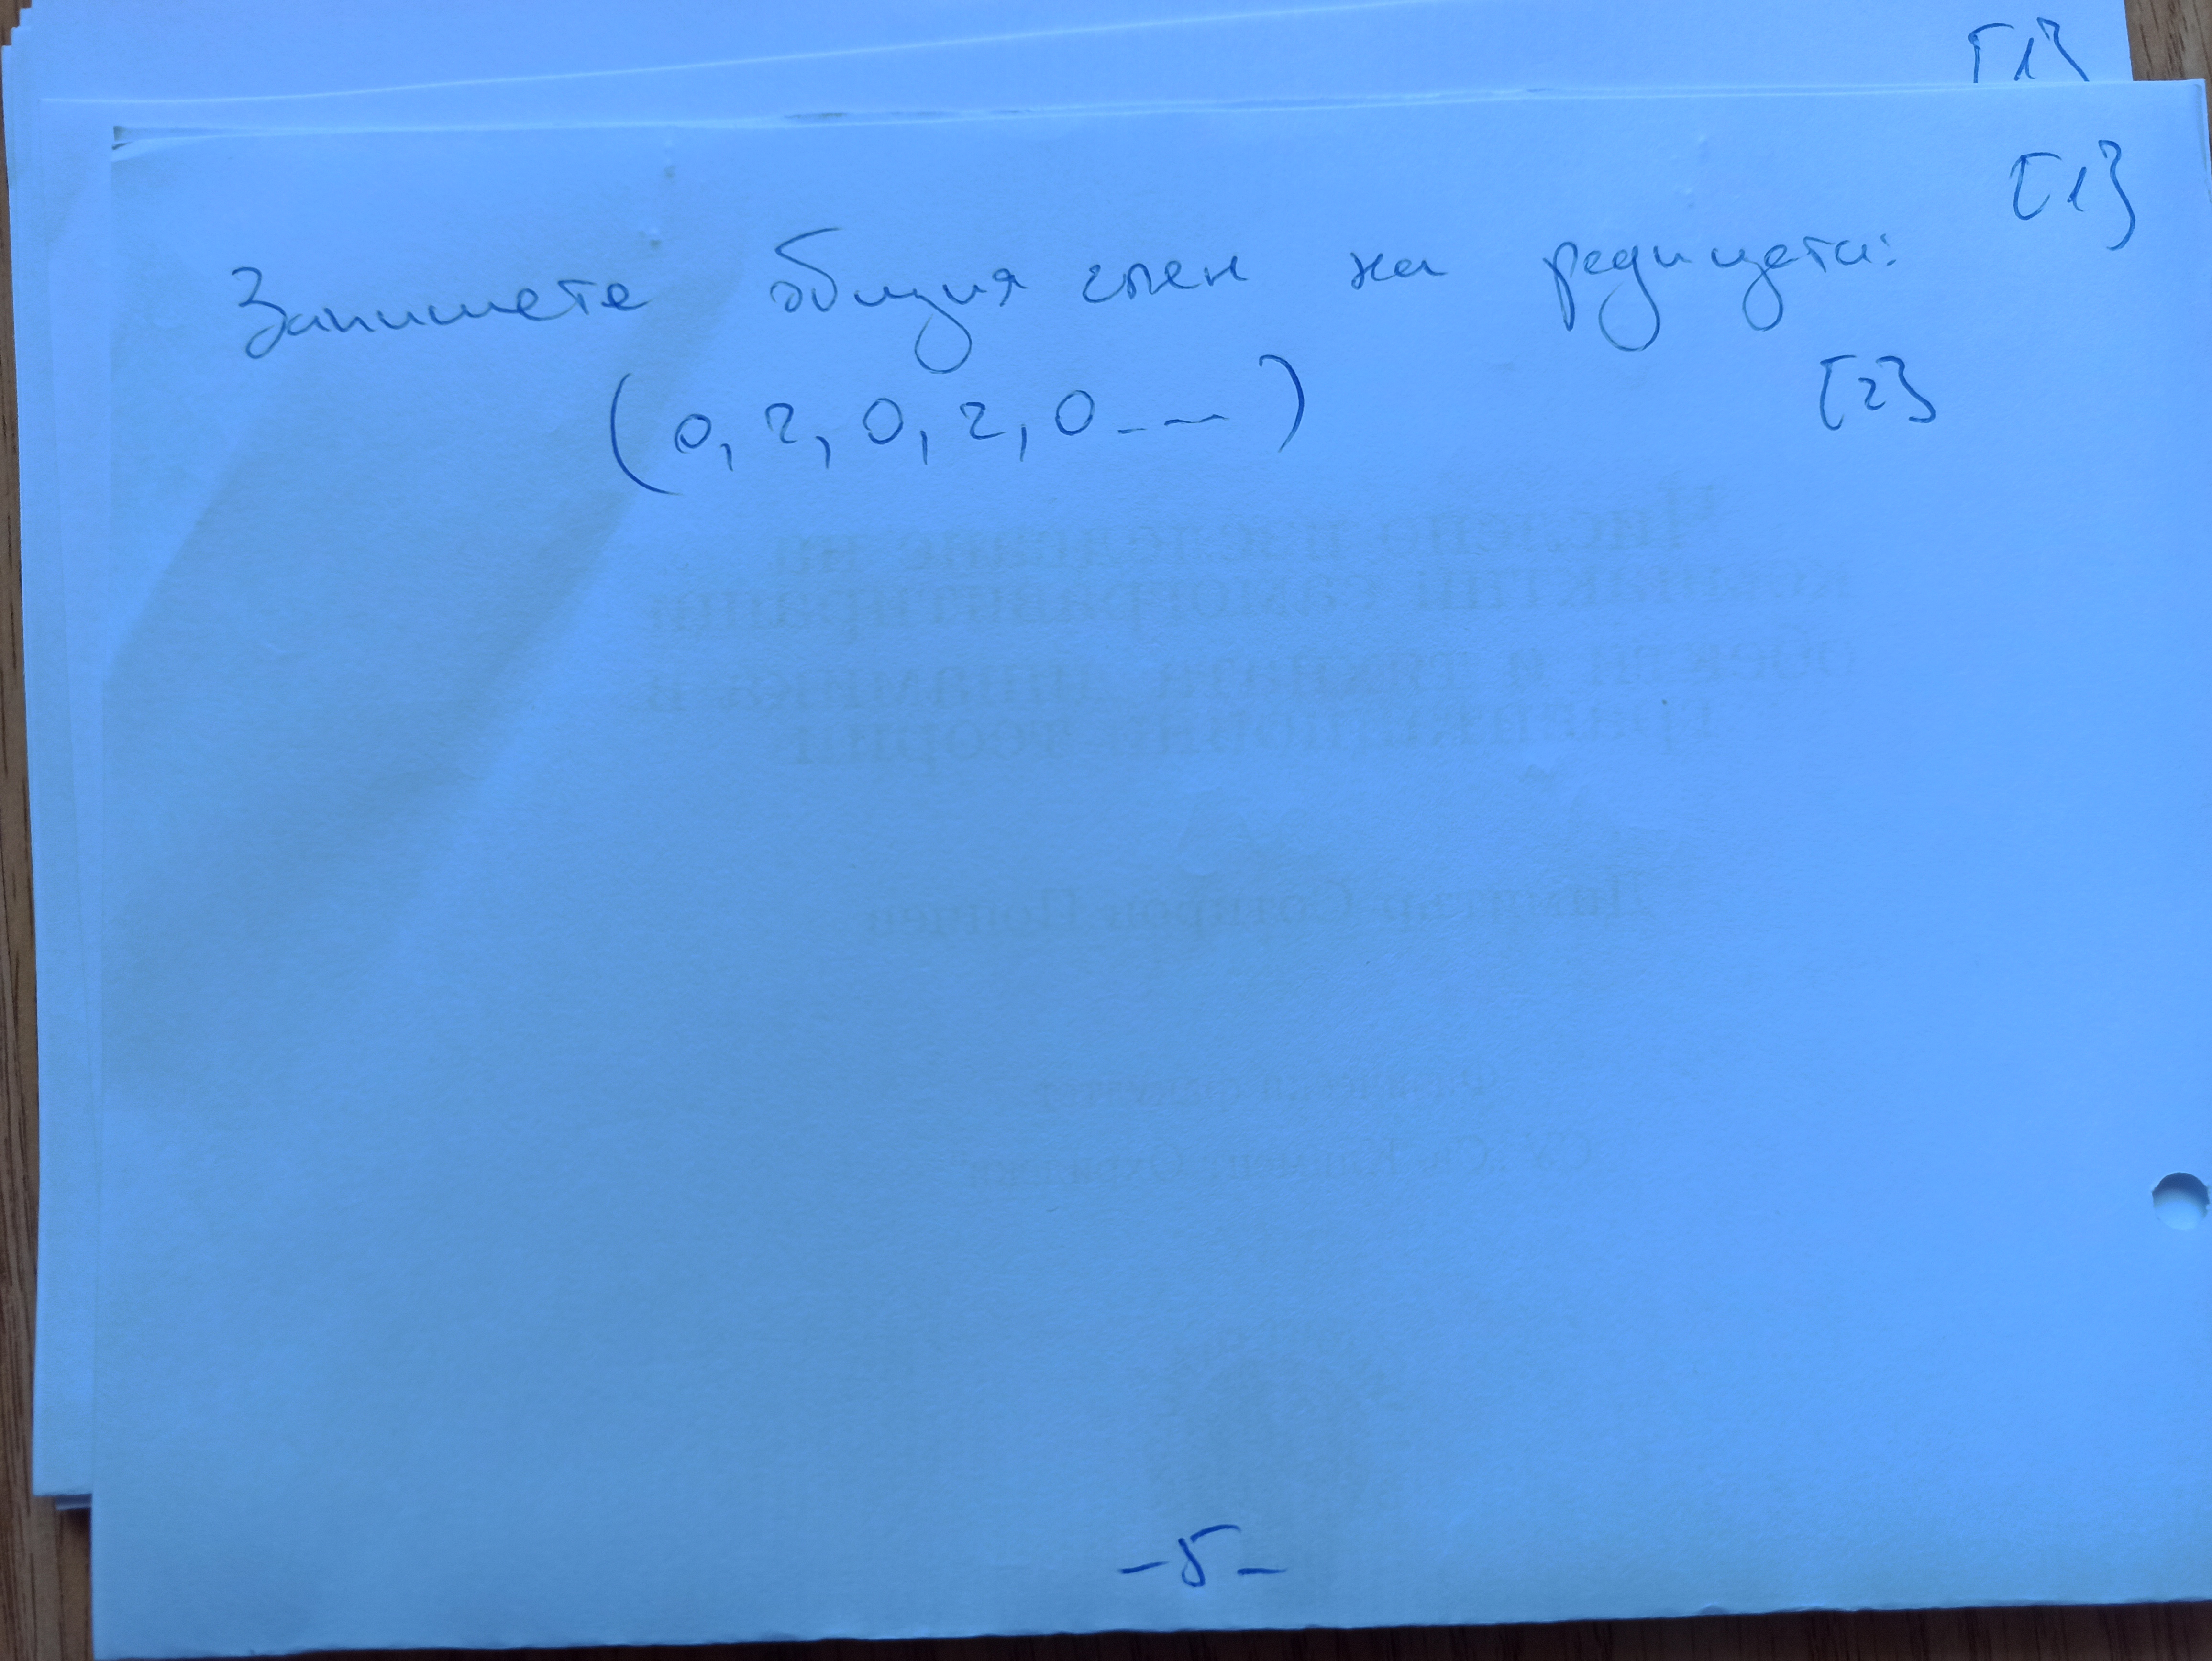 [1}
[1}
Запишете общия член на редицата:
(0, 2, 0, 2, 0 - - - )   [2}
- 5 -